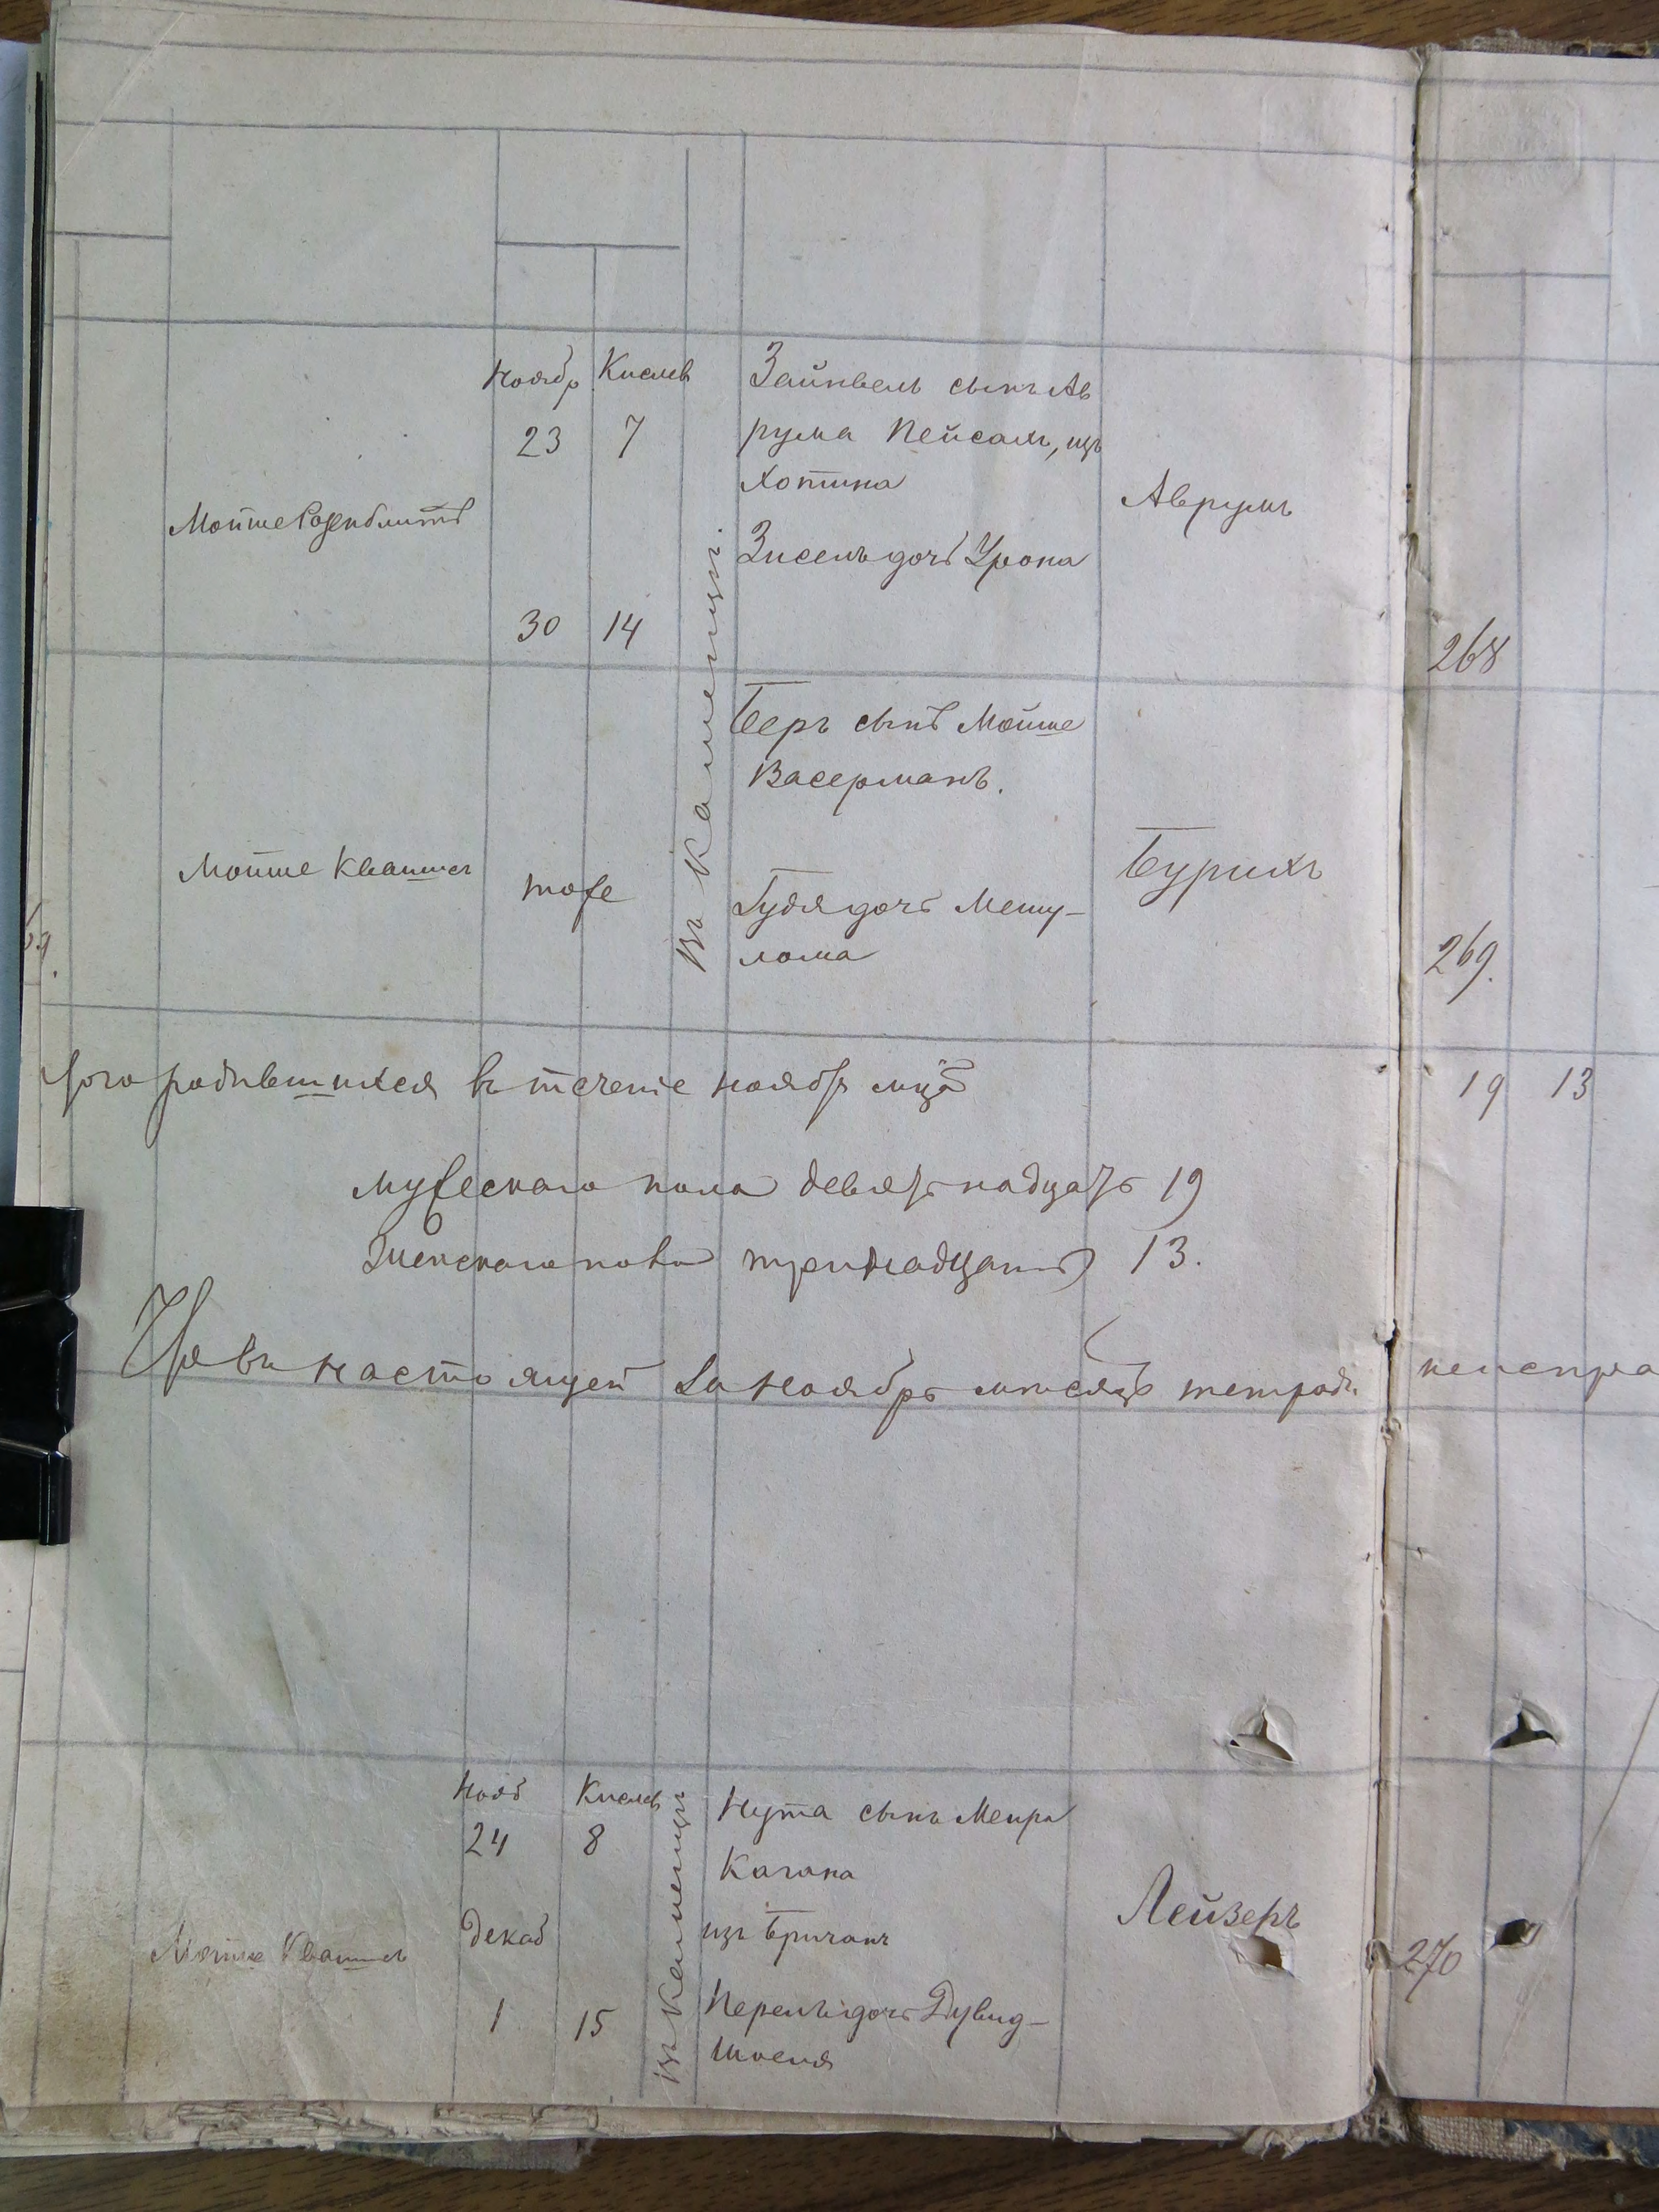 Ноябр Кислев
23 7
Мойше Розенблитъ
30 14
въ Каменцѣ.
Зайнвель сынъ Ав
рума Пейсахъ, изъ
Хотина
Зисель дочь Урона
Аврумъ
268
Мойше Квашисъ
тоже
Беръ сынъ Мойше
Васерманъ.
Гудя дочь Мешу-
лома
Бурихъ
269.
родившихся въ теченіе ноябр мца
19 13
мужескаго пола девятьнадцать 19
Женскаго пола тринадцать 13.
въ настоящей за Ноябрь мѣсяцъ тетради
неиспра
Нояб Кислев
24 8
Декаб
1 15
въ Каменцѣ
Нута сынъ Меира
Кагана
изъ Бричанъ
Перель дочь Дувид-
Шоеля
Лейзеръ
270